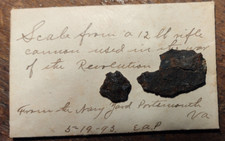 Scale from a 12 lb rifle
cannon used in the war
of the Revolution
From the Navy Yard Portsmouth
Va
5-19-93 LAP